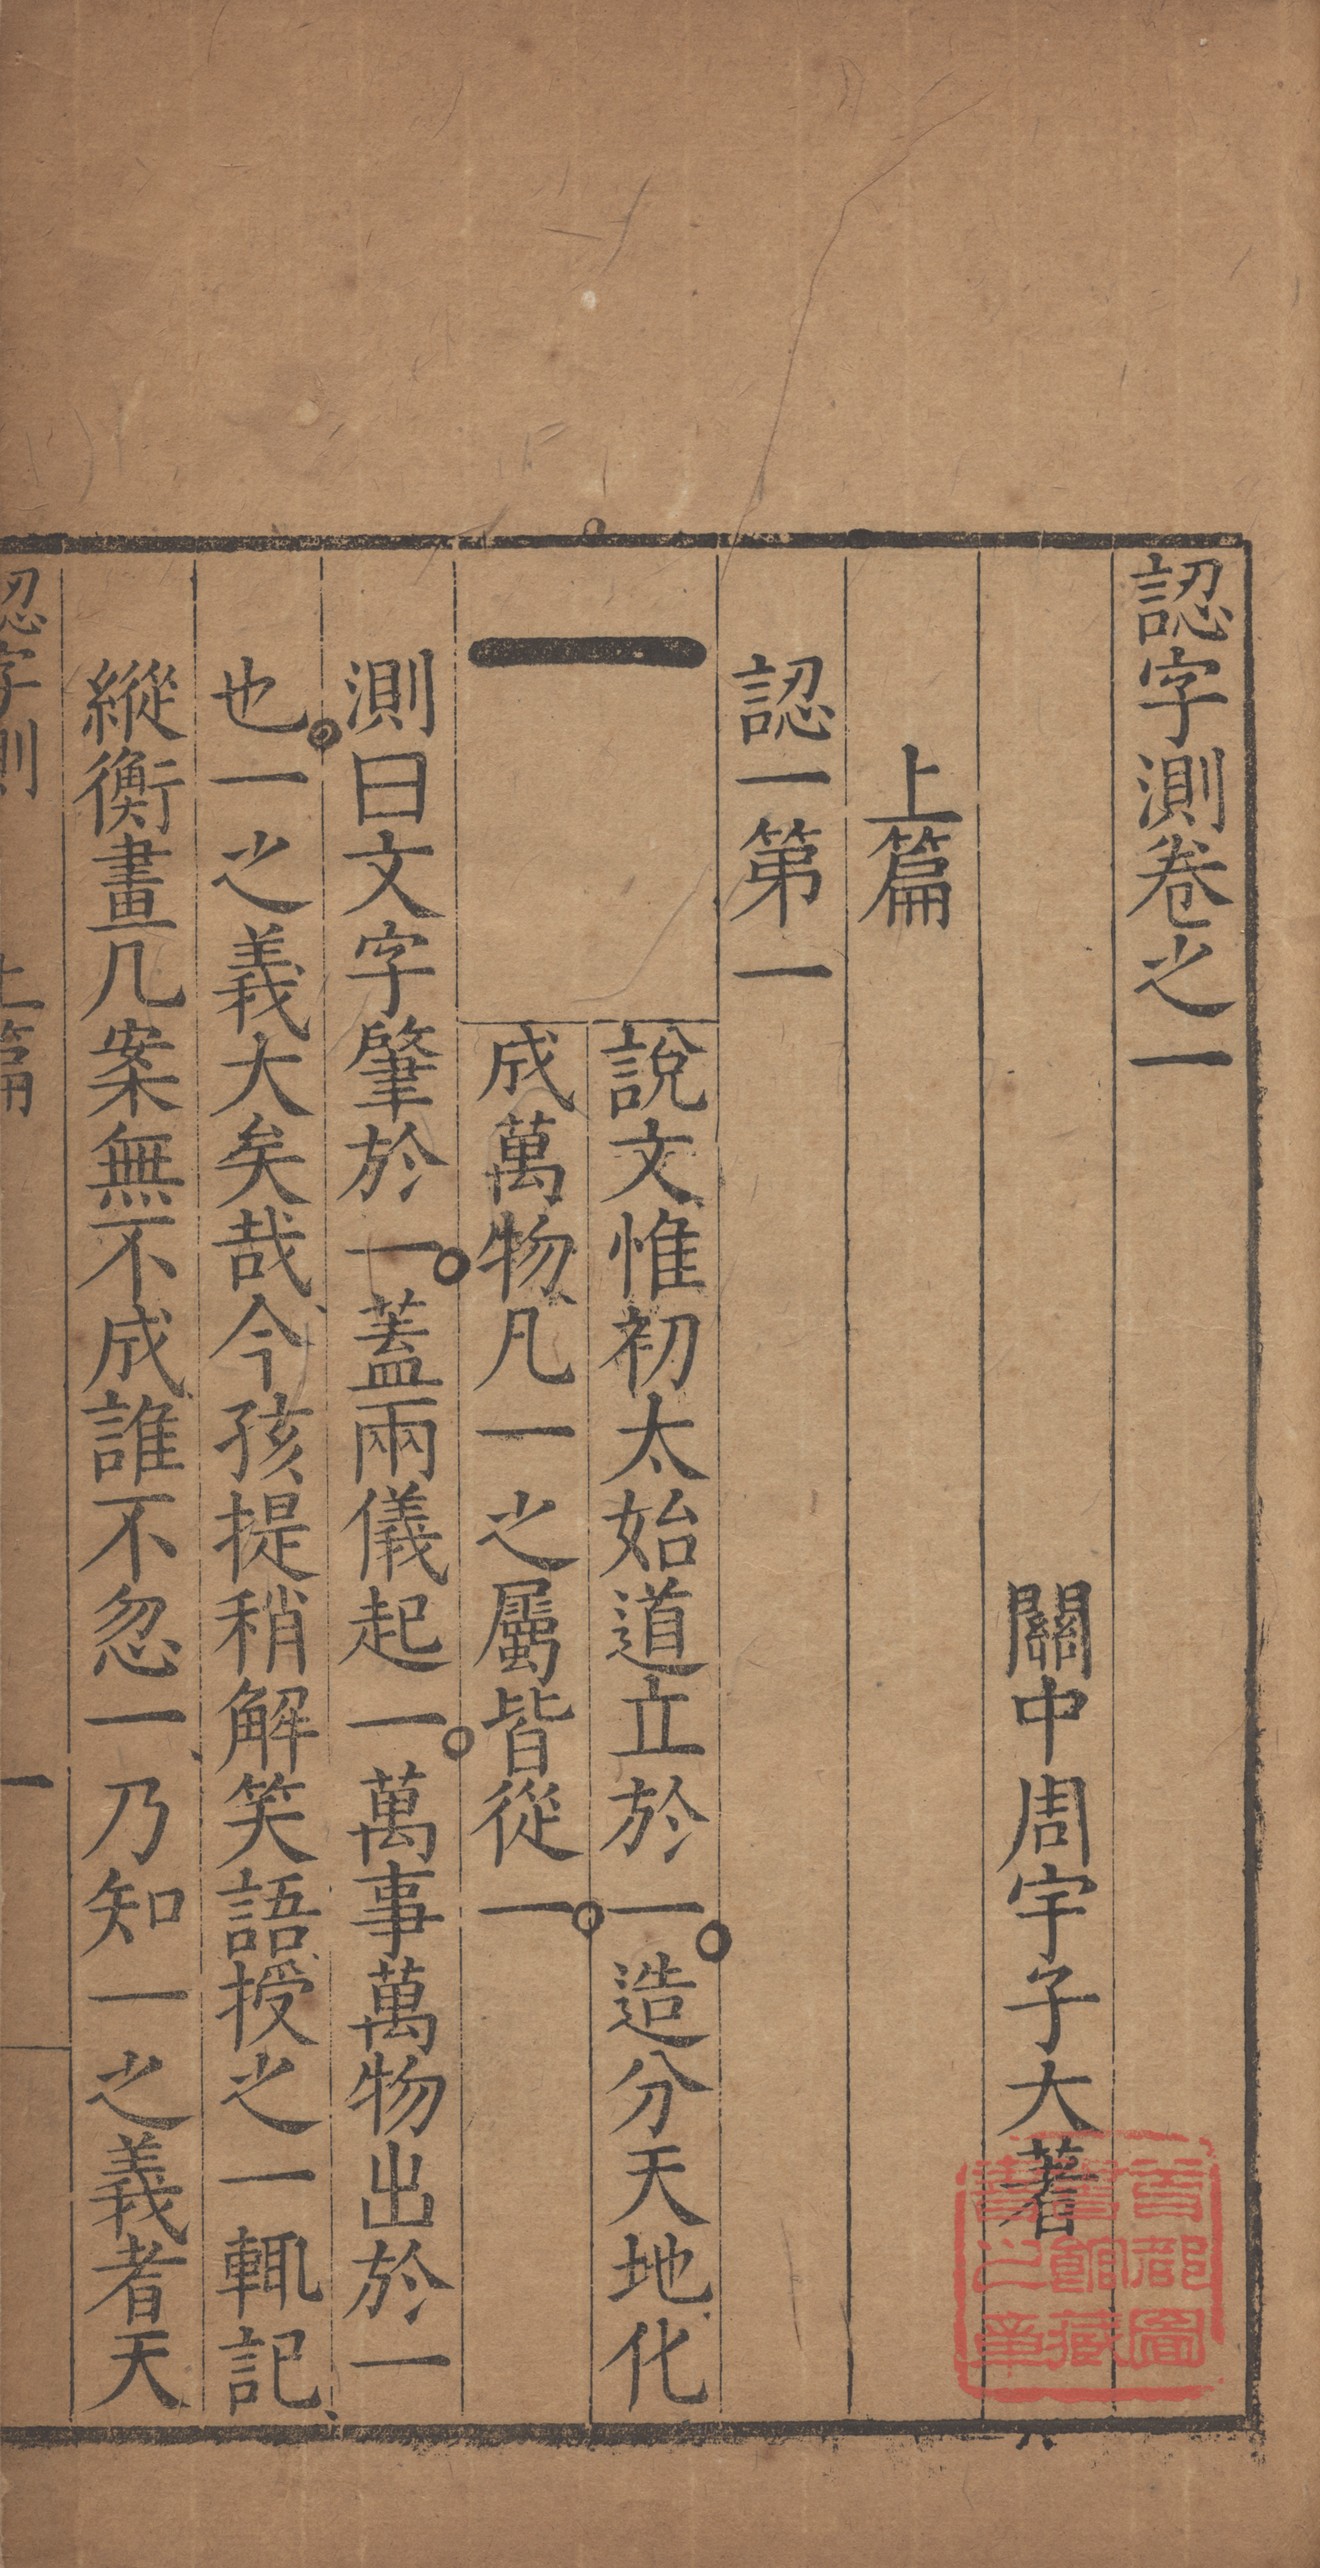 認字測卷之一
關中周宇子大著
上篇
認一第一
一
說文惟初太始道立於一造分天地化
成萬物凡一之屬皆從一
測曰文字肇於一蓋兩儀起一萬事萬物出於一
也一之義大矣哉今孩提稍解笑語授之一輒記
縱衡畫几案無不成誰不忽一乃知一之義者天
認字測 上篇 一
京都圖
書館藏
書之章